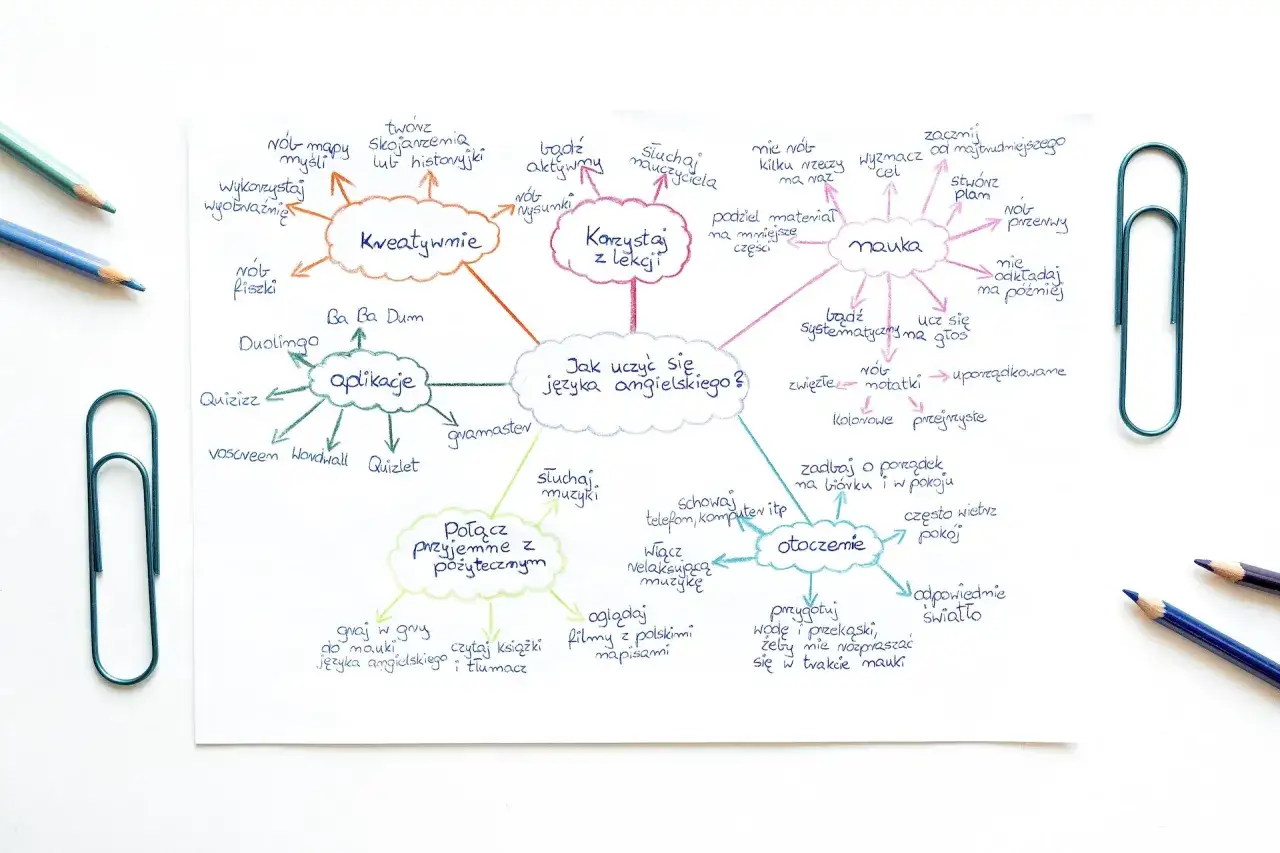 Jak uczyć się
języka angielskiego?
Kreatywnie
wykorzystaj
wyobraźnię
rób mapy
myśli
twórz
skojarzenia
lub historyjki
rób
rysunki
rób
fiszki
Korzystaj
z lekcji
bądź
aktywny
słuchaj
nauczyciela
nauka
podziel materiał
na mniejsze
części
nie rób
kilku rzeczy
na raz
wyznacz
cel
zacznij
od najtrudniejszego
stwórz
plan
rób
przerwy
nie
odkładaj
na później
ucz się
na głos
bądź
systematyczny
rób
notatki
zwięzłe
uporządkowane
kolorowe
przejrzyste
aplikacje
Ba Ba Dum
Duolingo
Quizizz
voscreen
Wordwall
Quizlet
gramaster
Połącz
przyjemne z
pożytecznym
słuchaj
muzyki
graj w gry
do nauki
języka angielskiego
czytaj książki
i tłumacz
oglądaj
filmy z polskimi
napisami
otoczenie
schowaj
telefon, komputer itp
zadbaj o porządek
na biórku i w pokoju
często wietrz
pokój
odpowiednie
światło
przygotuj
wodę i przekąski,
żeby nie rozpraszać
się w trakcie nauki
włącz
relaksującą
muzykę